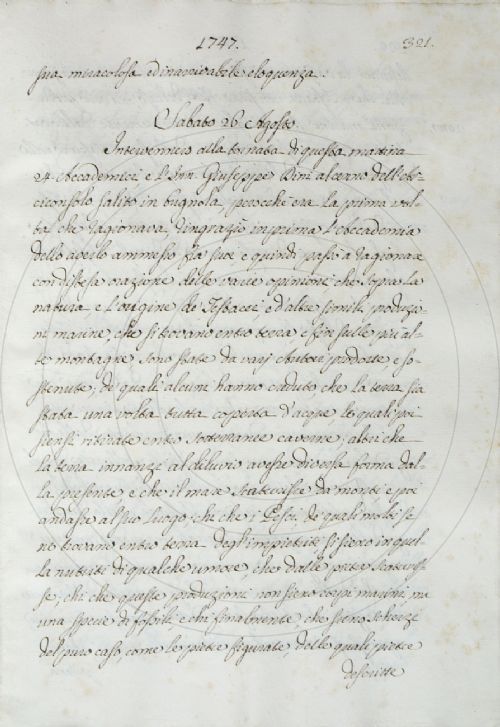 1747. 321.
sua miracolosa ed inarrivabile eloquenza.
Sabato 26 Agosto
Intervennero alla tornata di questa mattina
24 Accademici e l'Inn. Giuseppe Bini al cenno dell'Ar-
ciconsolo salito in bugnola, perocchè era la prima vol-
ta che ragionava, ringraziò in prima l'Accademia
dello averlo ammesso fra suoi e quindi passò a ragionare
con distesa orazione delle varie opinioni che sopra la
natura e l'origine de' Testacei e d'altre simili produzio-
ni marine, che si trovano entro terra, e fin sulle più al-
te montagne sono state da varj Autori prodotte, e so-
stenute; de' quali alcuni hanno creduto che la terra sia
stata una volta tutta coperta d'acque, le quali poi
siensi ritirate entro sotterranee caverne; altri che
la terra innanzi al diluvio avesse diversa forma dal-
la presente e che il mare scaturisse da monti e poi
andasse al suo luogo; chi che i Pesci de' quali molti se
ne trovano entro terra degl'impietriti si sieno in quel-
la nutriti di qualche umore, che dalle pietre scaturis-
se; chi che queste produzioni non sieno corpi marini, ma
una specie di fossili, e chi finalmente che sieno scherzi
del puro caso, come le pietre figurate, delle quali pietre
descritte